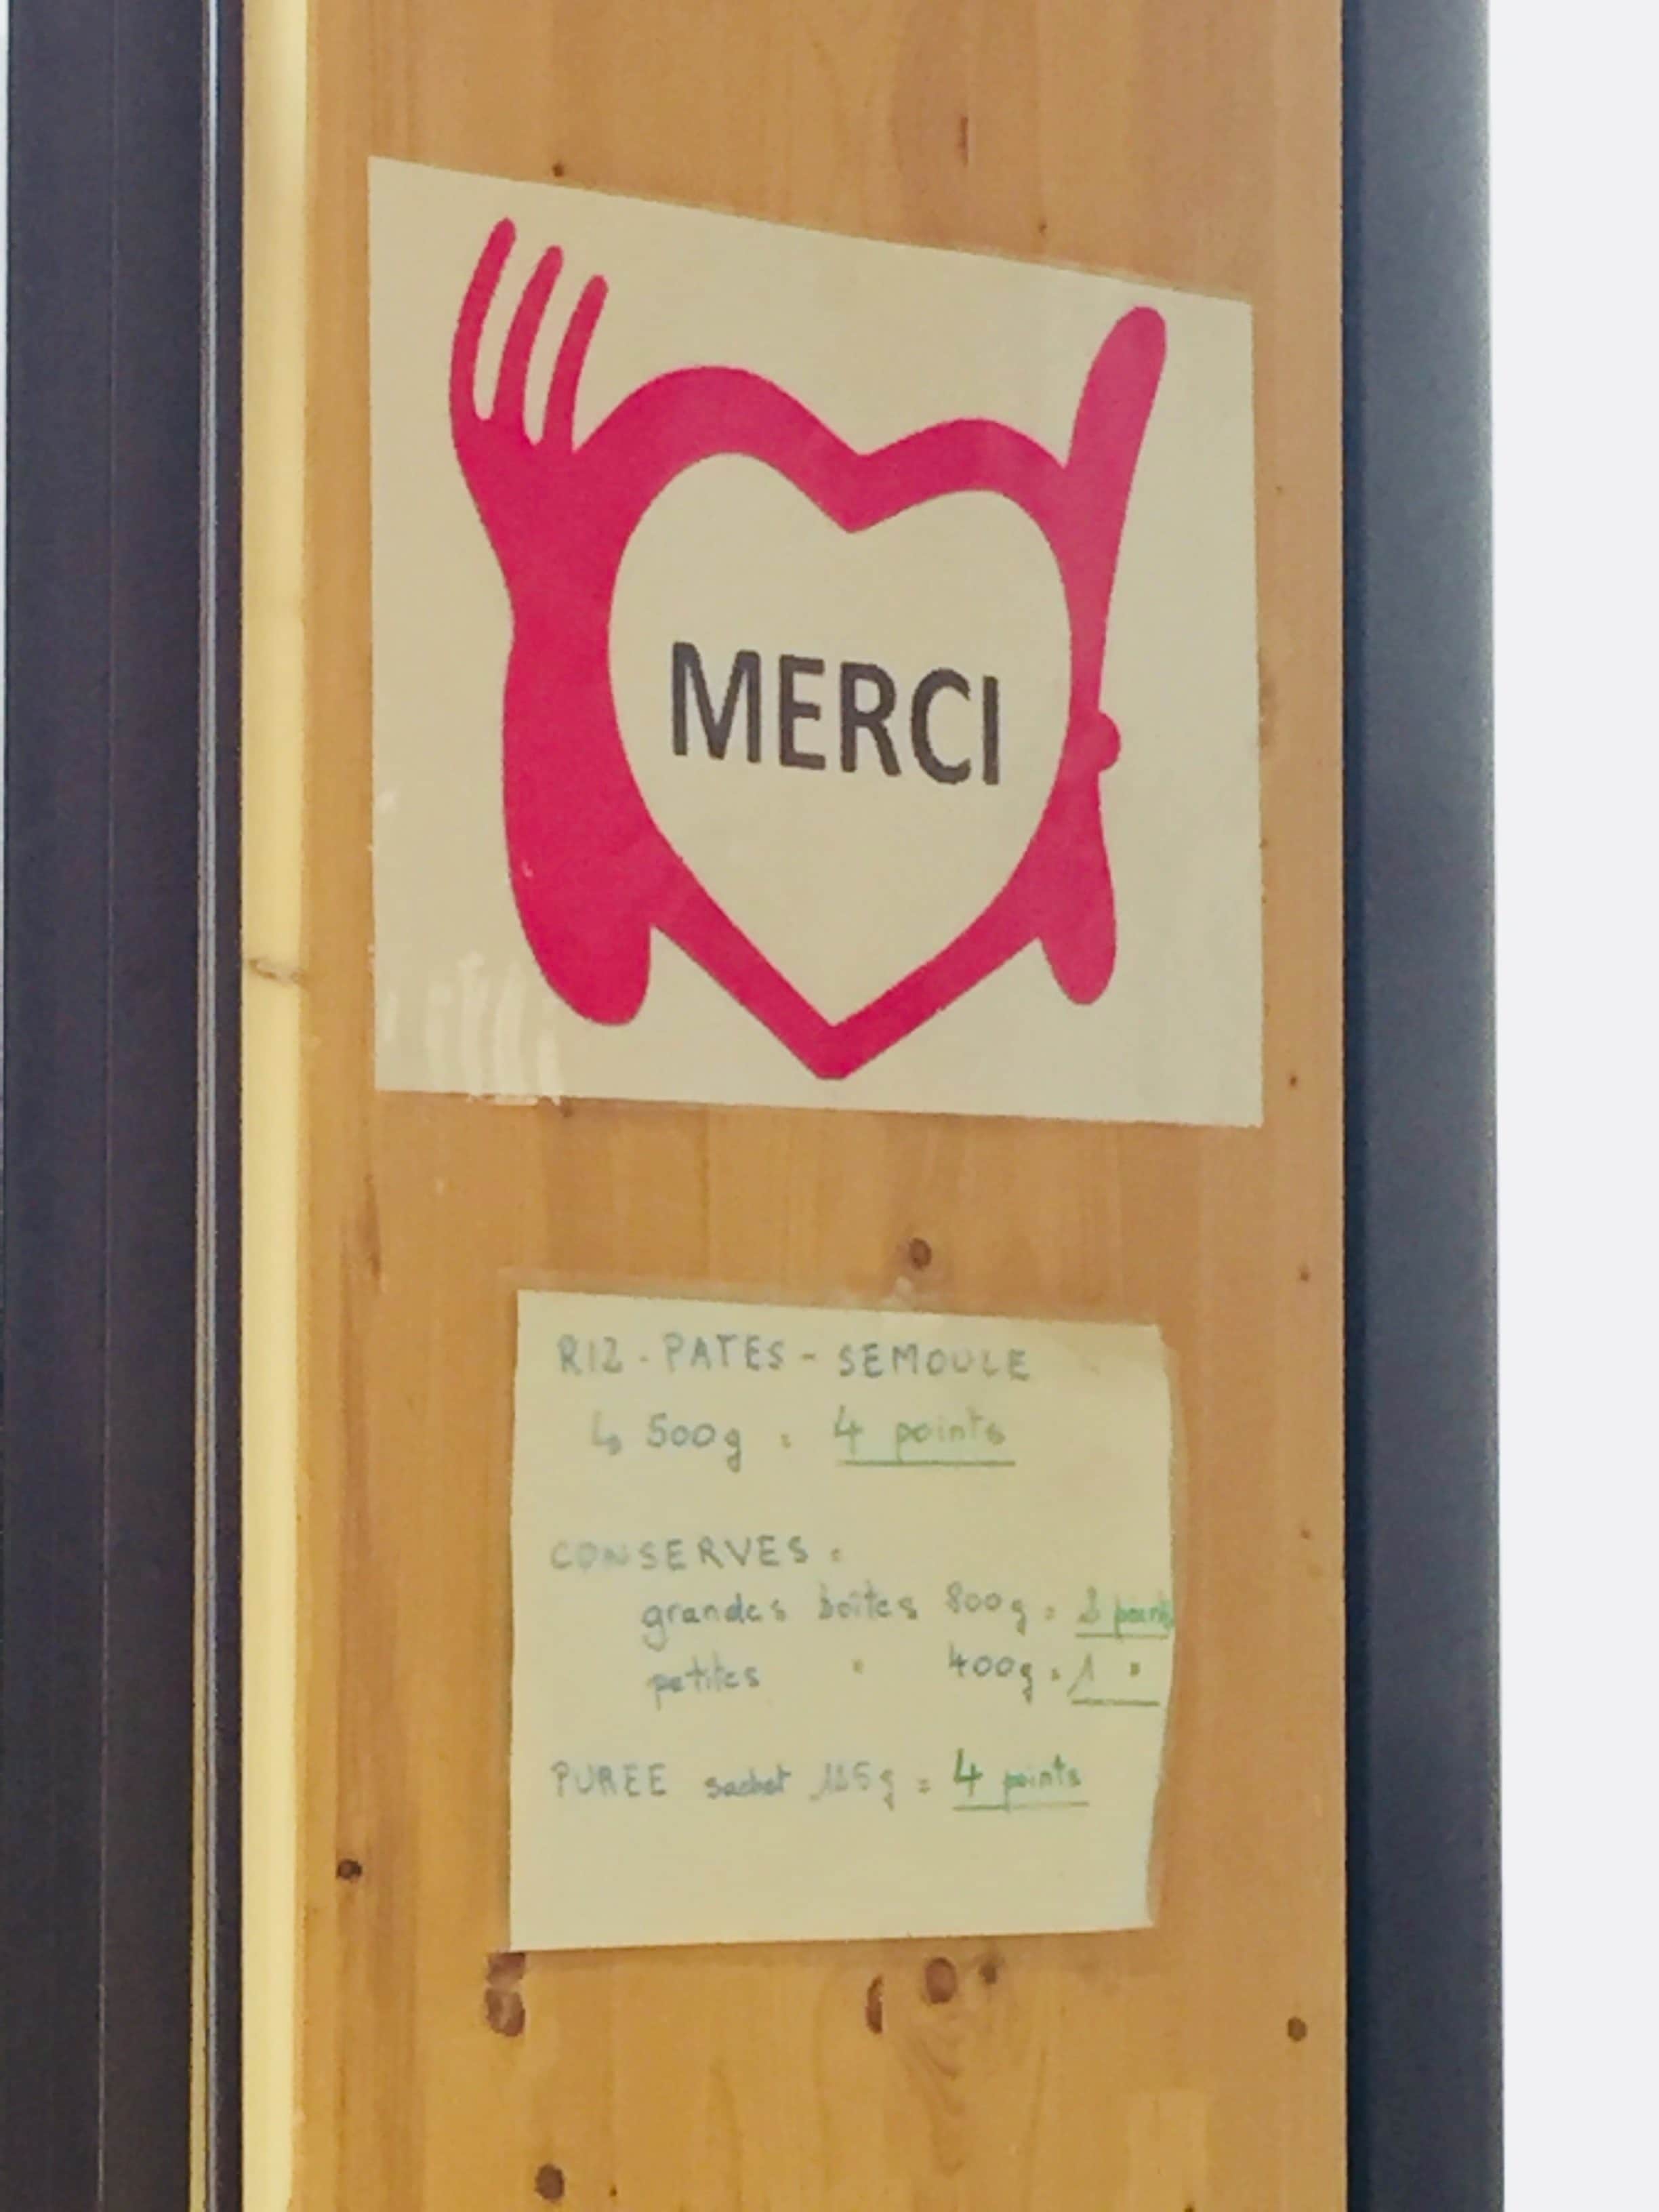 MERCI
RIZ - PATES - SEMOULE
↳ 500g = 4 points
CONSERVES :
grandes boîtes 800g = 2 points
petites " 400g = 1 "
PUREE sachet 125g = 4 points